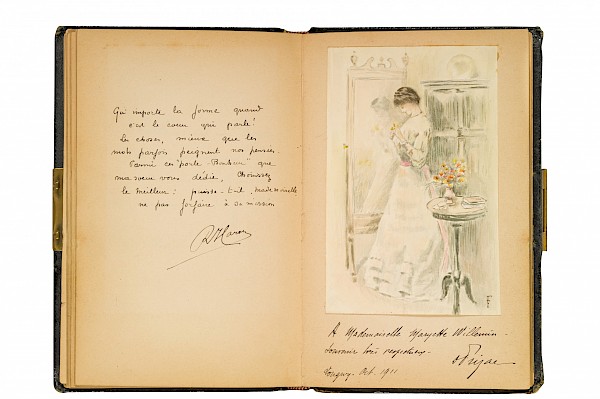 Qu'importe la forme quand
c'est le cœur qui parle!
les choses, mieux que les
mots parfois peignent nos pensées.
Parmi ces "porte-Bonheur" que
ma sœur vous dédie, choisissez
le meilleur: puisse-t-il, mademoiselle
ne pas forfaire à sa mission
A Mademoiselle Maryette Willemin.
Souvenir très respectueux.
Longwy. Oct. 1911